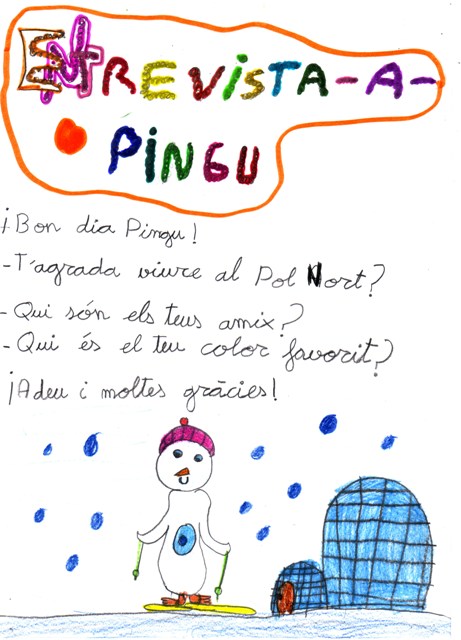 ENTREVISTA-A-
PINGU
¡Bon dia Pingu!
-T'agrada viure al Pol Nort?
-Qui són els teus amix?
-Qui és el teu color favorit?
¡Adeu i moltes gràcies!